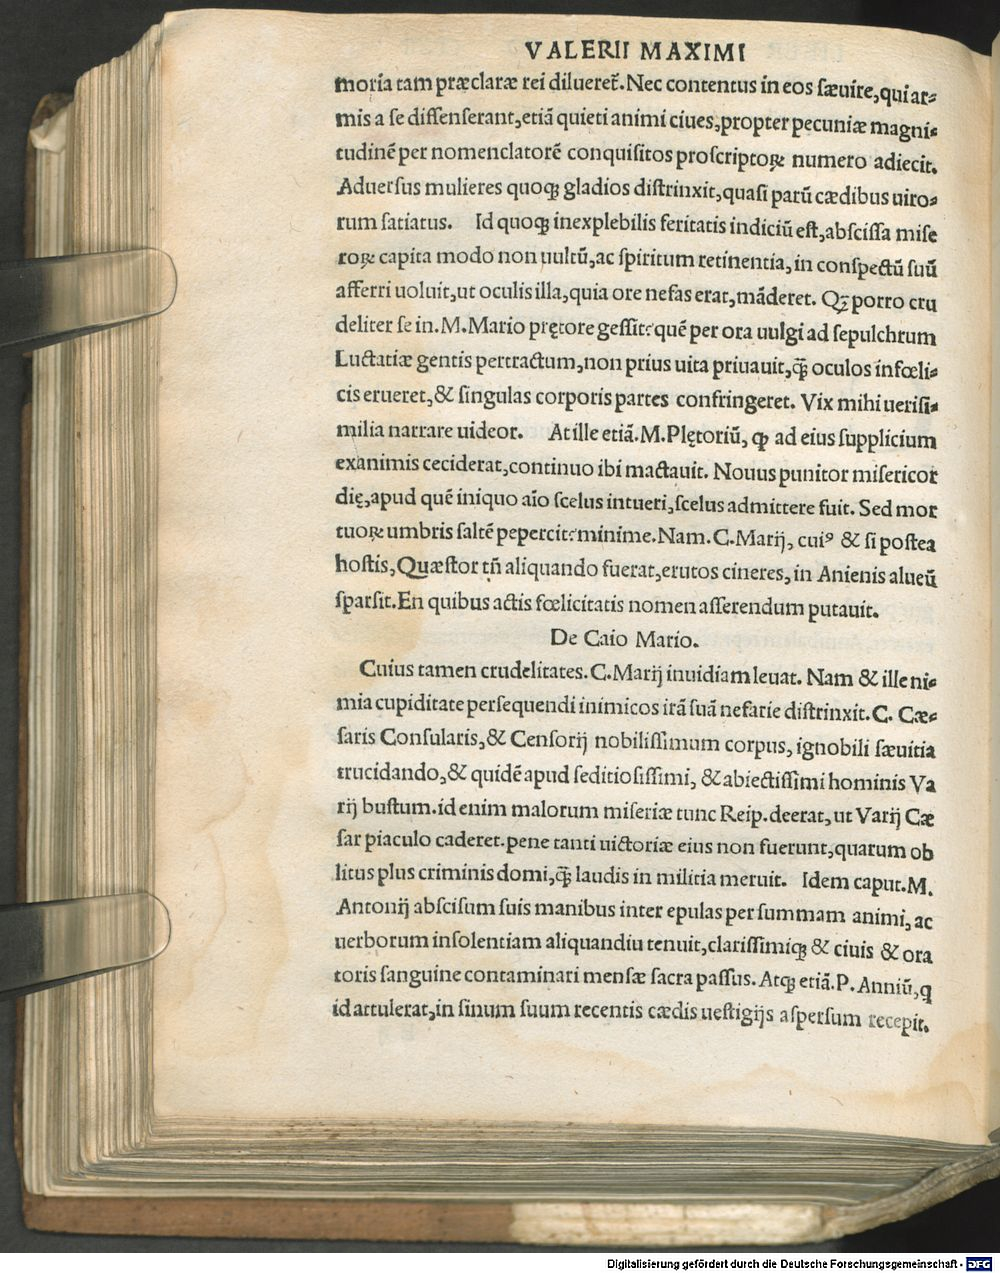 VALERII MAXIMI
moria tam præclaræ rei dilueret᷑. Nec contentus in eos ſæuire, qui ar⸗
mis a ſe diſſenſerant, etiā quieti animi ciues, propter pecuniæ magni⸗
tudinē per nomenclatorē conquiſitos proſcriptoꝝ numero adiecit.
Aduerſus mulieres quoqꝫ gladios diſtrinxit, quaſi parū cædibus uiro⸗
rum ſatiatus. Id quoqꝫ inexplebilis feritatis indiciū eſt, abſciſſa miſe
roꝝ capita modo non uultū, ac ſpiritum retinentia, in conſpectū ſuū
afferri uoluit, ut oculis illa, quia ore nefas erat, māderet. Qꝫ porro cru
deliter ſe in. M. Mario prętore geſſit: quē per ora uulgi ad ſepulchrum
Luctatiæ gentis pertractum, non prius uita priuauit, q̄ꝫ oculos infœli⸗
cis erueret, & ſingulas corporis partes confringeret. Vix mihi ueriſi⸗
milia narrare uideor. At ille etiā. M. Plętoriū, qꝫ ad eius ſupplicium
exanimis ceciderat, continuo ibi mactauit. Nouus punitor miſericor
dię, apud quē iniquo aīo ſcelus intueri, ſcelus admittere fuit. Sed mor
tuoꝝ umbris ſaltē pepercit: minime. Nam. C. Marij, cuiꝰ & ſi poſtea
hoſtis, Quæſtor tñ aliquando fuerat, erutos cineres, in Anienis alueū
ſparſit. En quibus actis fœlicitatis nomen aſſerendum putauit.
De Caio Mario.
Cuius tamen crudelitates. C. Marij inuidiam leuat. Nam & ille ni⸗
mia cupiditate perſequendi inimicos irā ſuā nefarie diſtrinxit. C. Cæ⸗
ſaris Conſularis, & Cenſorij nobiliſſimum corpus, ignobili ſæuitia
trucidando, & quidē apud ſeditioſiſſimi, & abiectiſſimi hominis Va
rij buſtum. id enim malorum miſeriæ tunc Reip. deerat, ut Varij Cæ
ſar piaculo caderet. pene tanti uictoriæ eius non fuerunt, quarum ob
litus plus criminis domi, q̄ꝫ laudis in militia meruit. Idem caput. M.
Antonij abſciſum ſuis manibus inter epulas per ſummam animi, ac
uerborum inſolentiam aliquandiu tenuit, clariſſimiqꝫ & ciuis & ora
toris ſanguine contaminari menſæ ſacra paſſus. Atqꝫ etiā. P. Anniū, q
id attulerat, in ſinum ſuum recentis cædis ueſtigijs aſperſum recepit.
Digitalisierung gefördert durch die Deutsche Forschungsgemeinschaft - DFG